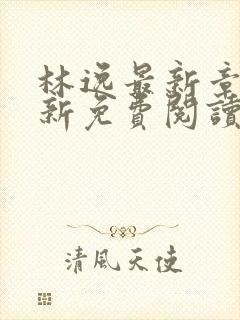 林逸最新章
新免費閱讀
清風天使